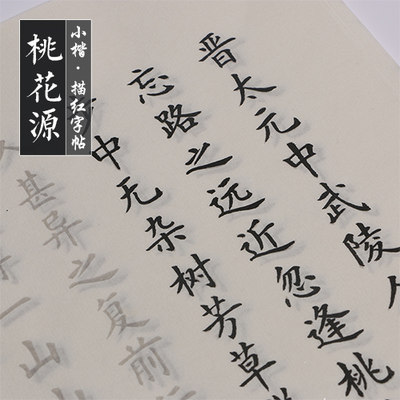 桃花源
小楷·描红字帖
晋太元中武陵
忘路之远近忽逢桃
中无杂树芳草
甚异之复前
一山